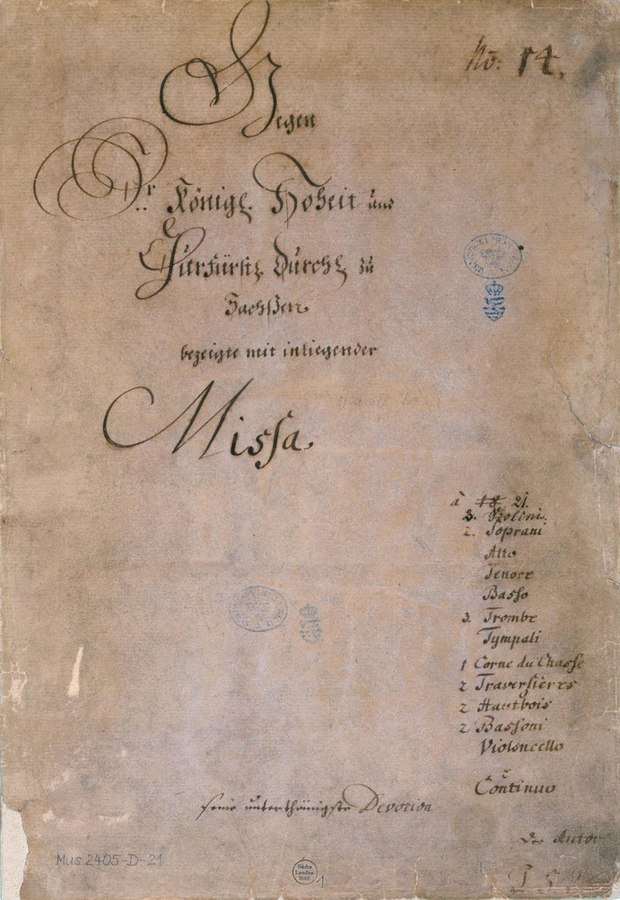 No: 14.
Gegen
Sr. Königl. Hoheit und
Churfürstl. Durchl. zu
Sachßen
bezeigte mit inliegender
Missa
à 18 21.
3. Violini.
2. Soprani
Alto
Tenore
Basso
3. Trombe
Tympali
1 Corne du Chasse
2 Traversieres
2 Hautbois
2 Bassoni
Violoncello
e
Continuo
seine unterthänigste Devotion
der Autor
J S
Mus. 2405-D-21
Sächs.
Landes-
Bibl.
1